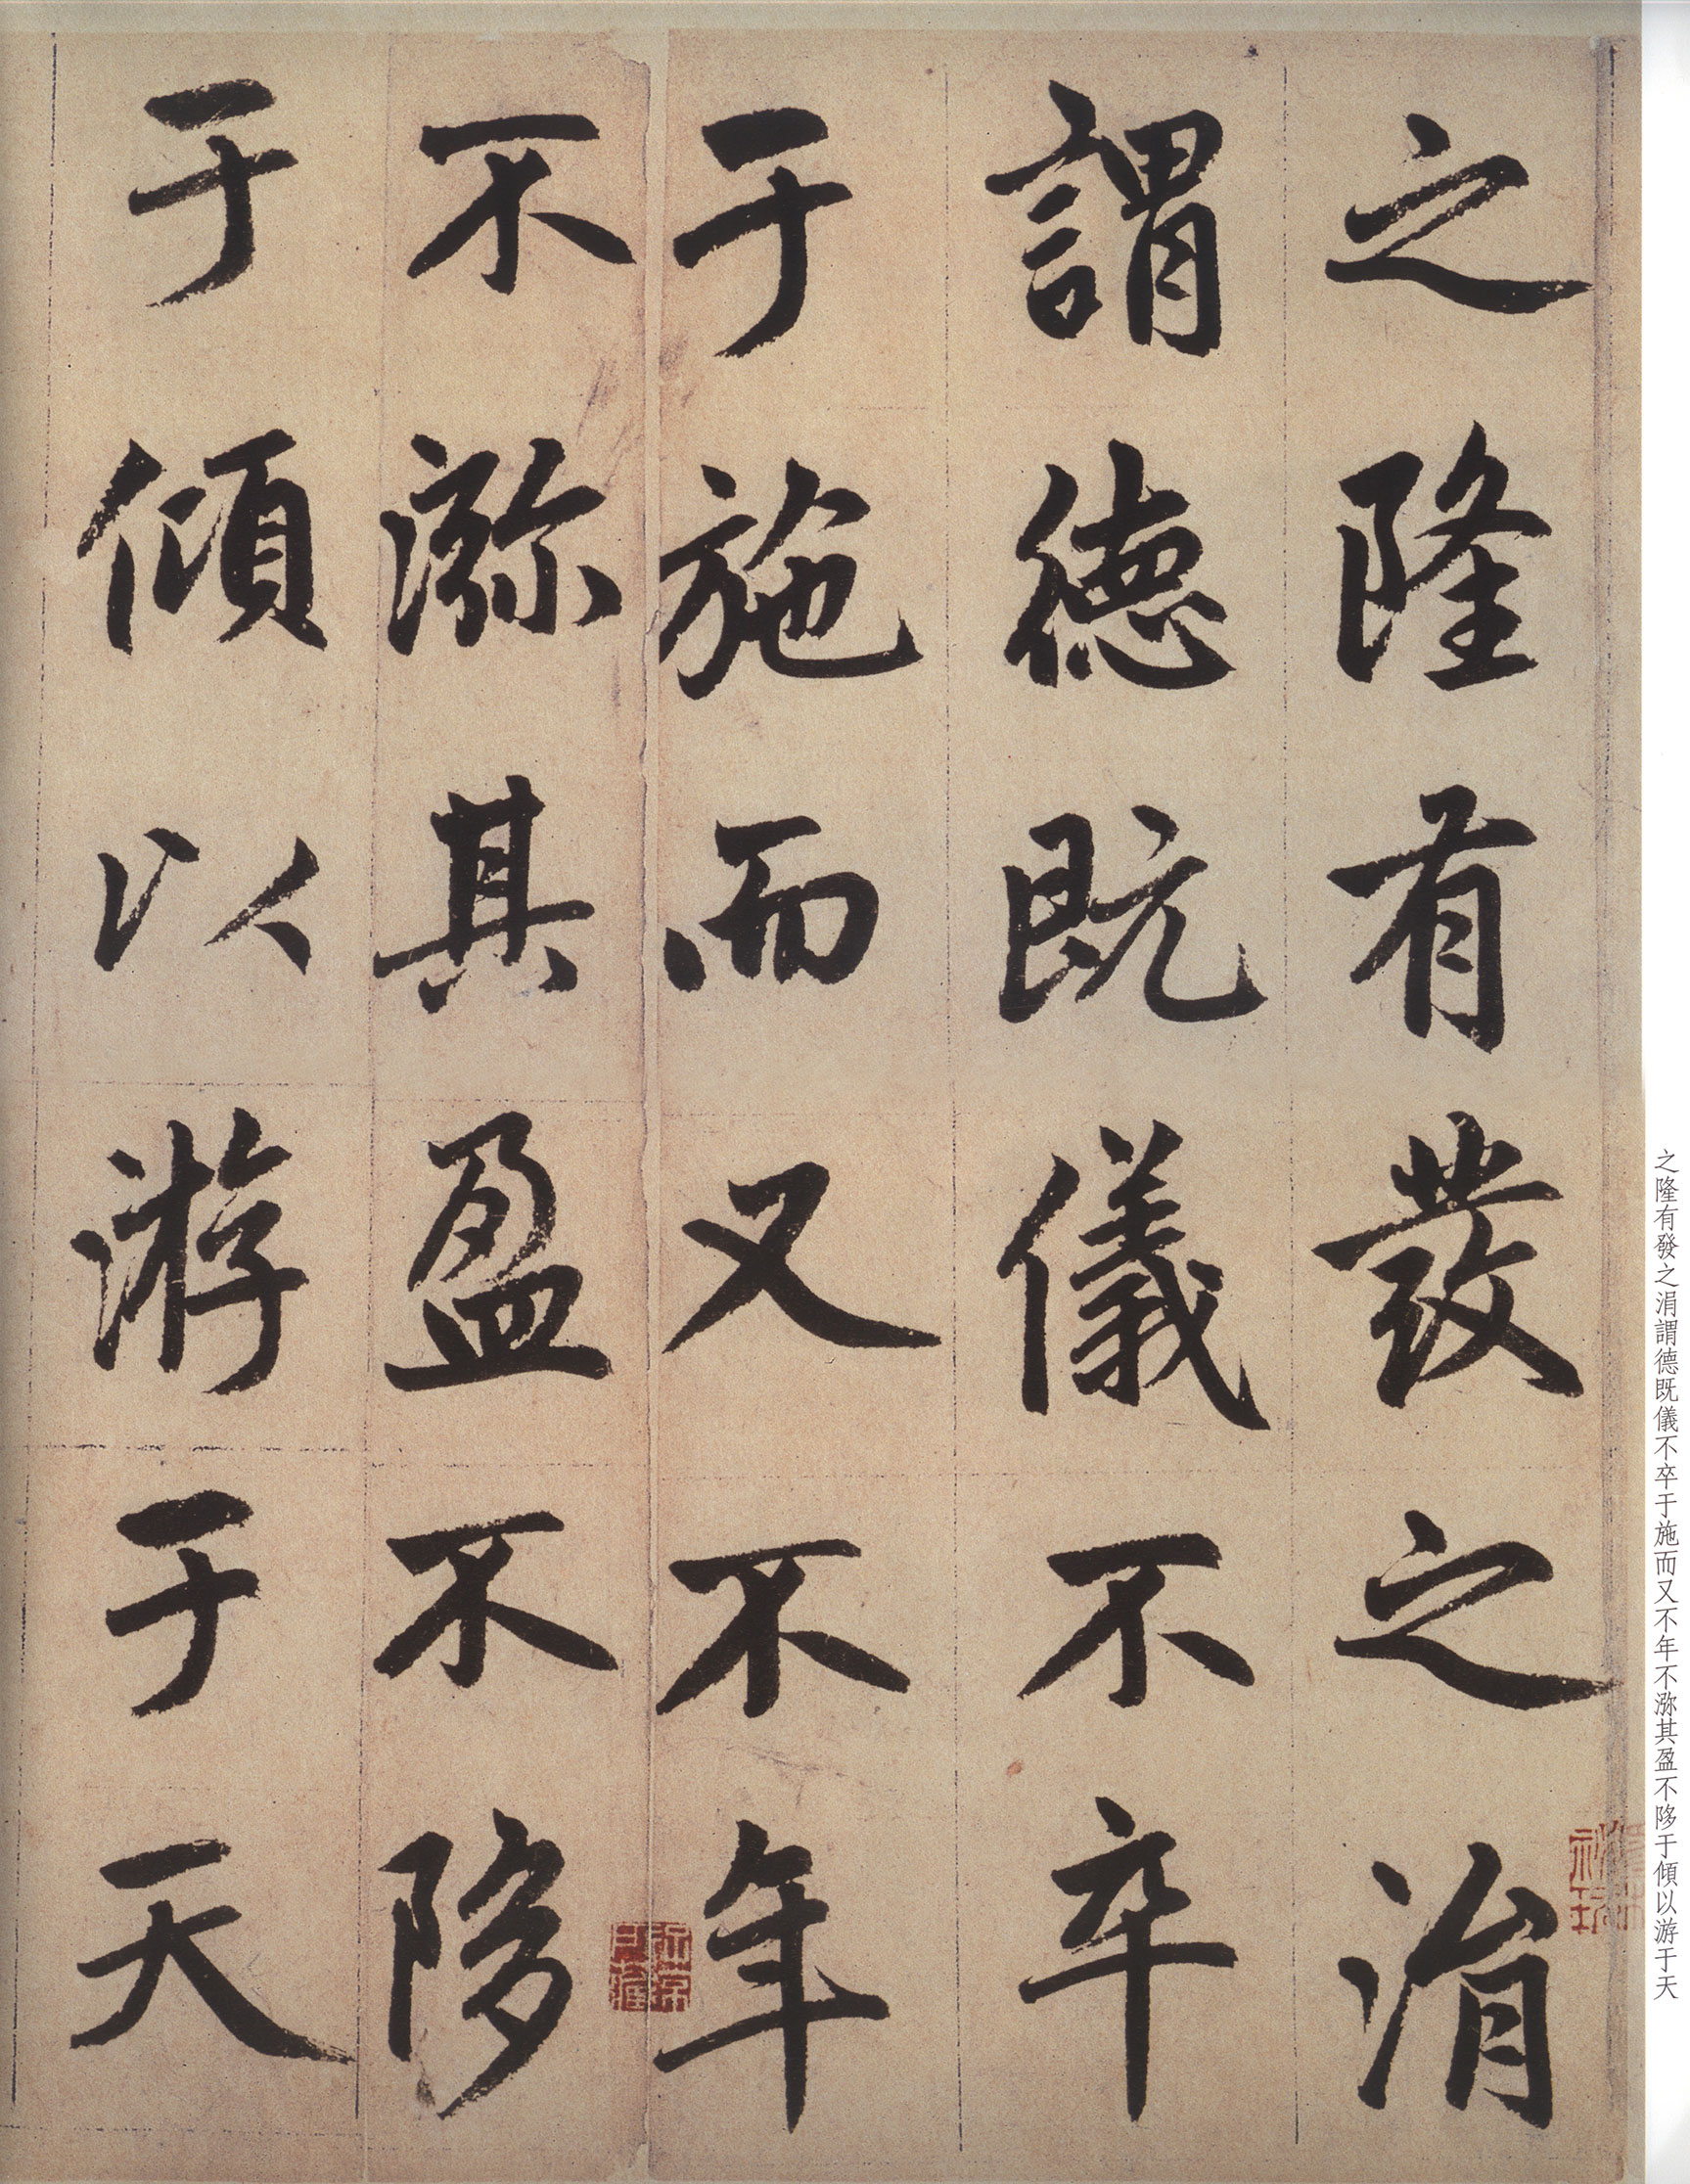 之隆有發之涓
謂德既儀不卒
于施而又不年
不沵其盈不陊
于傾以游于天
之隆有發之涓謂德既儀不卒于施而又不年不沵其盈不陊于傾以游于天